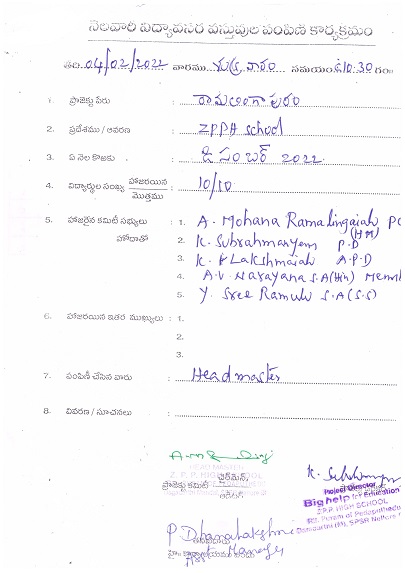 నెలవారీ విద్యావసర వస్తువుల పంపిణీ కార్యక్రమం
తేది. 04/02/2022 వారము శుక్రవారం సమయం 10:30 గం
1. ప్రాజెక్టు పేరు : రామలింగాపురం
2. ప్రదేశము / ఆవరణ : ZPPH school
3. ఏ నెల కొఱకు : డిసంబర్ 2022
4. విద్యార్థుల సంఖ్య హాజరయిన / మొత్తము : 10/10
5. హాజరైన కమిటీ సభ్యులు : 1. A. Mohana Ramalingaiah
హోదాతో (HM)
2. K. Subrahmanyam P.D
3. K. Lakshmaiah A.P.D
4. A.V. Narayana S.A(Hin)
5. Y. Sree Ramulu S.A(S.S)
6. హాజరయిన ఇతర ముఖ్యులు : 1.
2.
3.
7. పంపిణీ చేసిన వారు : Headmaster
8. వివరణ / సూచనలు :
HEAD MASTER
Z. P. P. HIGH SCHOOL
ప్రాజెక్టు కమిటీ ఛైర్మన్,
ఆడిటర్
Project Director
Big help for Education
Z.P.P. HIGH SCHOOL